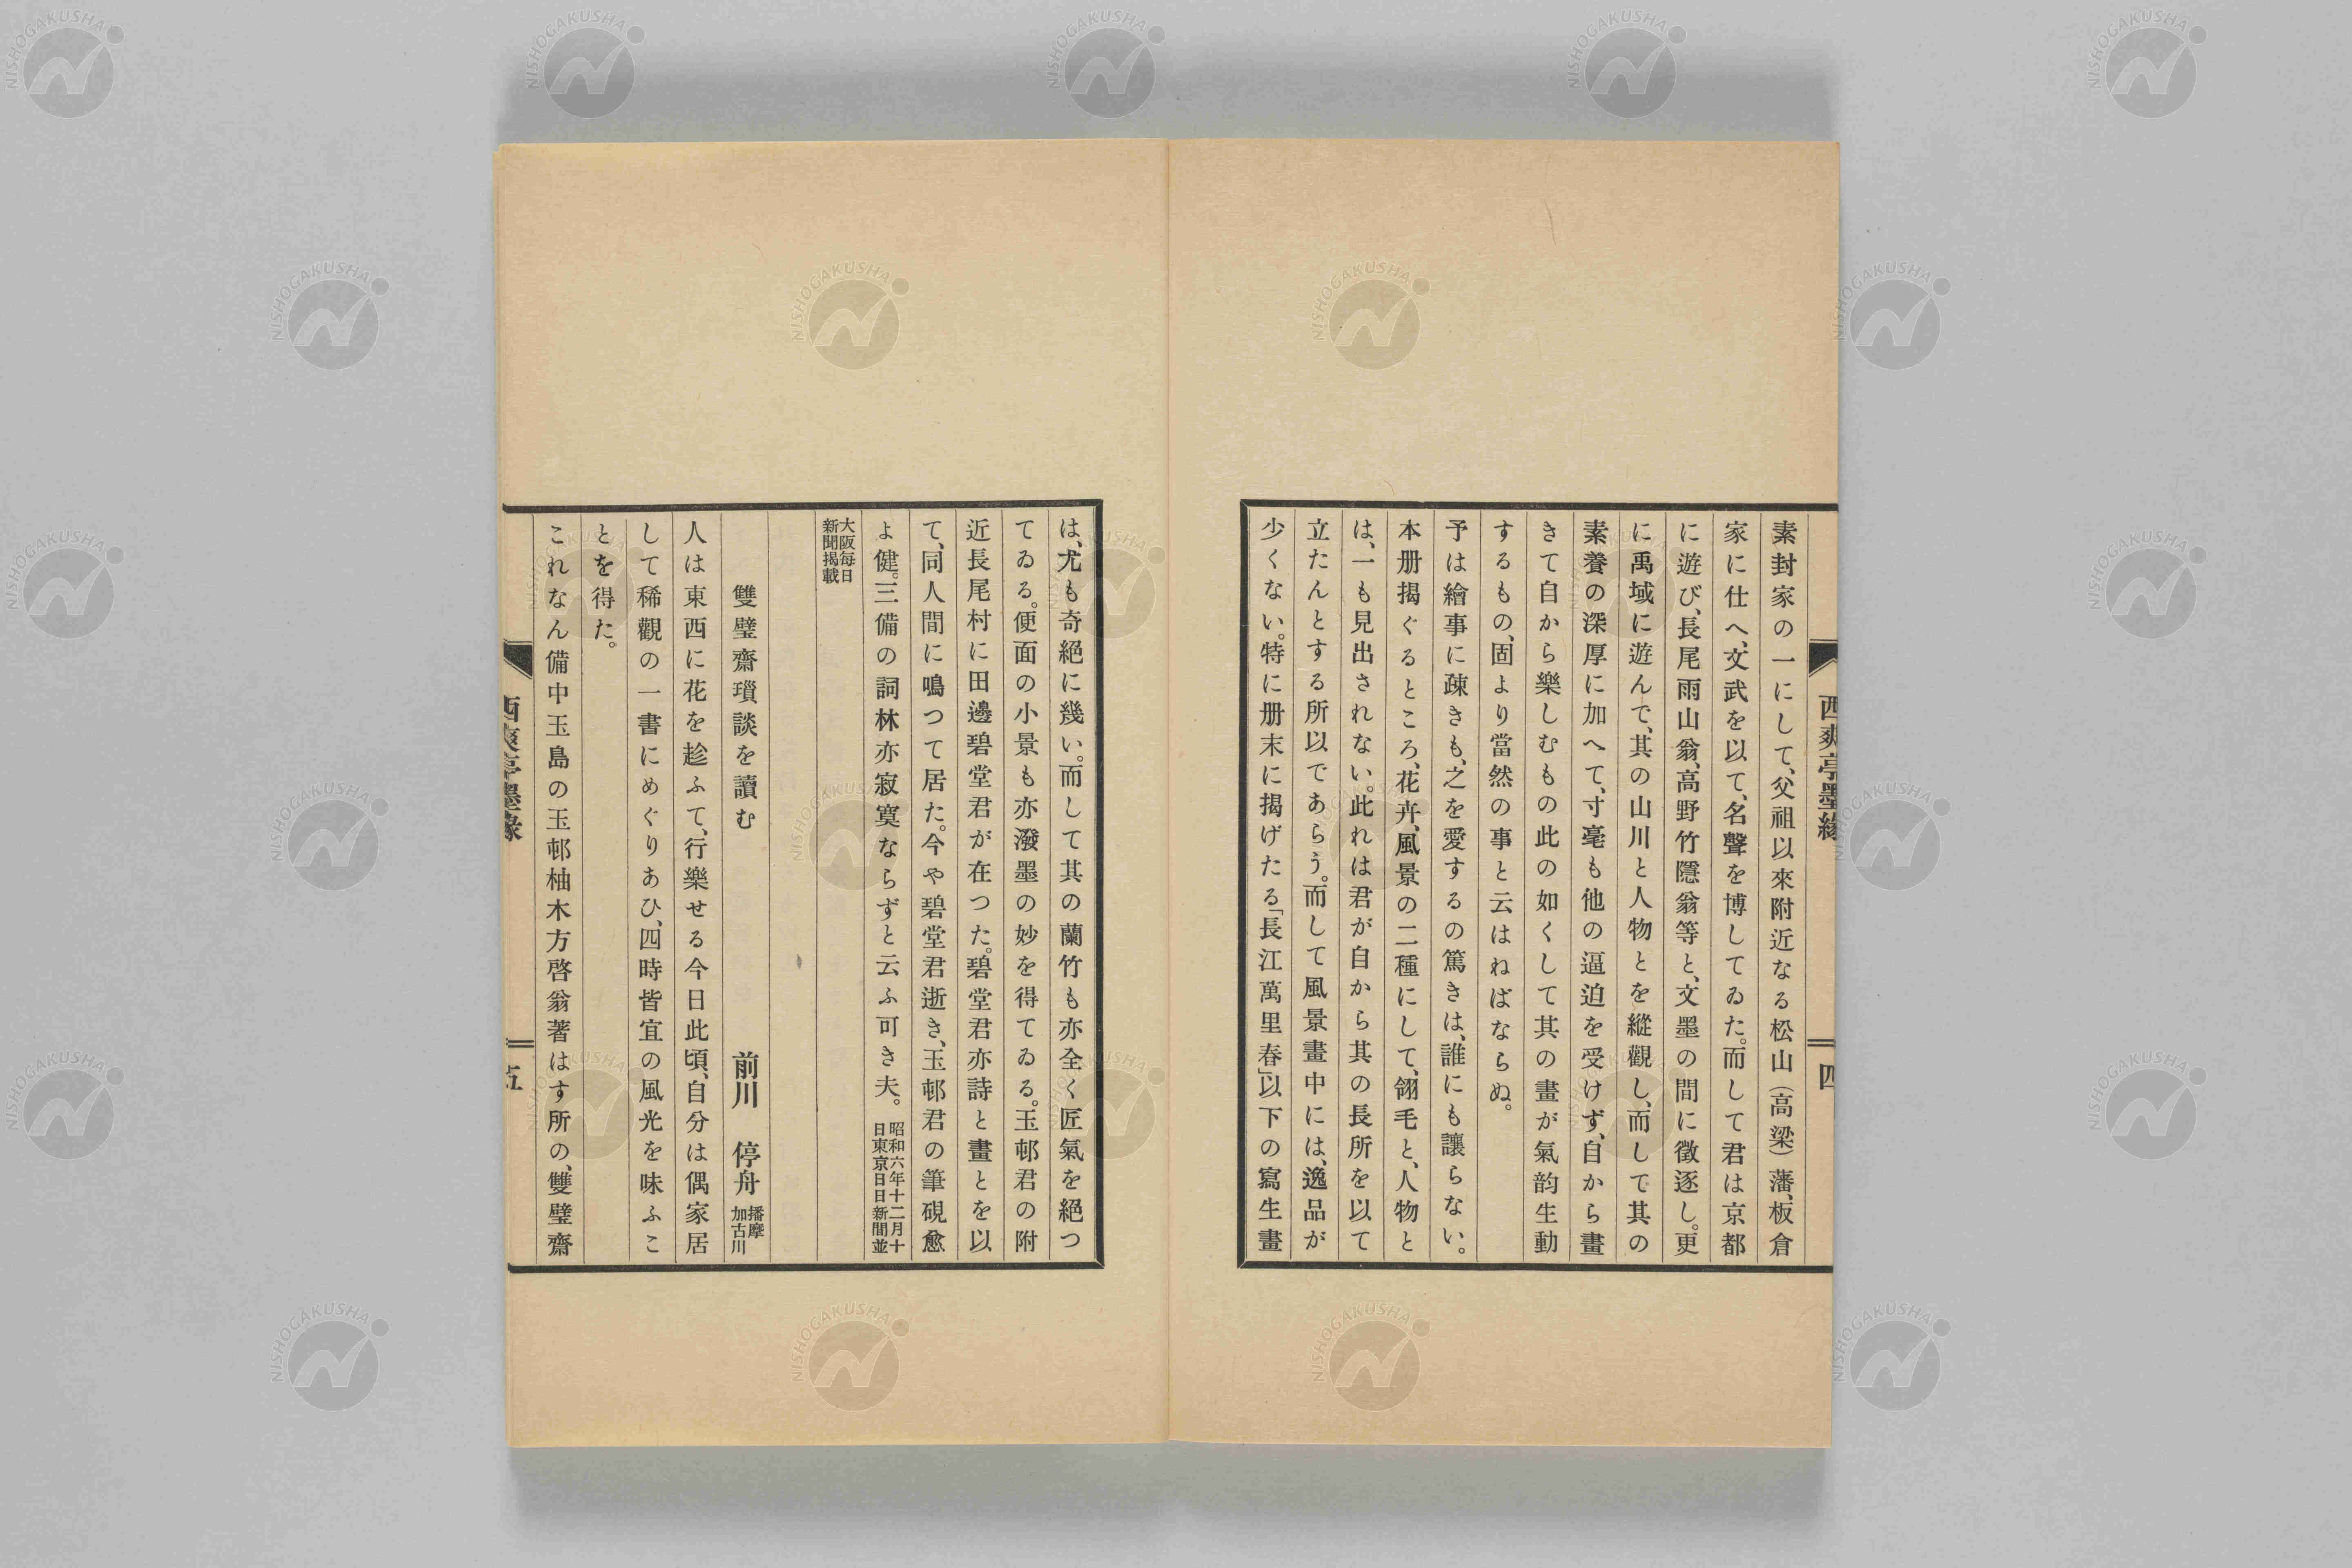 西爽亭墨緣
四
素封家の一にして、父祖以來附近なる松山（高梁）藩、板倉
家に仕へ、文武を以て、名聲を博してゐた。而して君は京都
に遊び、長尾雨山翁、高野竹隱翁等と、文墨の間に徵逐し。更
に禹域に遊んで、其の山川と人物とを縱觀し、而して其の
素養の深厚に加へて、寸毫も他の逼迫を受けず、自から畫
きて自から樂しむもの此の如くして其の畫が氣韵生動
するもの、固より當然の事と云はねばならぬ。
予は繪事に疎きも、之を愛するの篤きは、誰にも讓らない。
本册揭ぐるところ、花卉、風景の二種にして、翎毛と、人物と
は、一も見出されない。此れは君が自から其の長所を以て
立たんとする所以であらう。而して風景畫中には、逸品が
少くない。特に册末に揭げたる「長江萬里春」以下の寫生畫
は、尤も奇絕に幾い。而して其の蘭竹も亦全く匠氣を絕つ
てゐる。便面の小景も亦潑墨の妙を得てゐる。玉邨君の附
近長尾村に田邊碧堂君が在つた。碧堂君亦詩と畫とを以
て、同人間に鳴つて居た。今や碧堂君逝き、玉邨君の筆硯愈
よ健。三備の詞林亦寂寞ならずと云ふ可き夫。
昭和六年十二月十
日東京日日新聞並
大阪每日
新聞揭載
雙璧齋瑣談を讀む
前川　停舟
播摩
加古川
人は東西に花を趁ふて、行樂せる今日此頃、自分は偶家居
して稀觀の一書にめぐりあひ、四時皆宜の風光を味ふこ
とを得た。
これなん備中玉島の玉邨柚木方啓翁著はす所の、雙璧齋
西爽亭墨緣
五
NISHOGAKUSHA